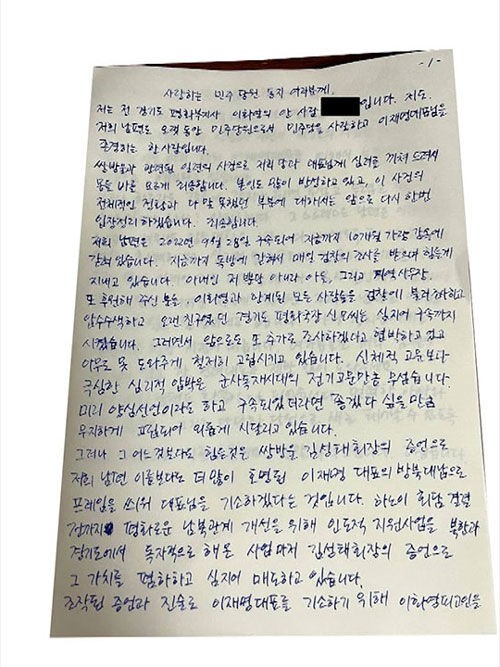 -1-
사랑하는 민주당원 동지 여러분께.
저는 전 경기도 평화부지사 이화영의 안사람 입니다. 저도
저희 남편도 오랫동안 민주당원으로서 민주당을 사랑하고 이재명대표님을
존경하는 한 사람입니다.
쌍방울과 관련된 일련의 사건으로 저희 당과 대표님께 심려를 끼쳐 드려서
몸둘 바를 모르게 죄송합니다. 본인도 많이 반성하고 있고, 이 사건의
전체적인 진행과 다 말 못했던 부분에 대해서는 앞으로 다시 한번
입장정리 하겠습니다. 죄송합니다.
저희 남편은 2022년 9월 28일 구속되어 지금까지 10개월 가량 감옥에
갇혀 있습니다. 지금까지 독방에 갇혀서 매일 검찰의 조사를 받으며 힘들게
지내고 있습니다. 아내인 저 뿐만 아니라 아들, 그리고 지역사무장,
또 후원해 주신 분들, 이화영과 관계된 모든 사람들을 검찰에 불러 조사하고
압수수색하고 오랜 친구였던 경기도 평화국장 신모씨는 심지어 구속까지
시켰습니다. 그러면서 앞으로도 또 추가로 조사하겠다고 협박하고 있고
아무도 못 도와주게 철저히 고립시키고 있습니다. 신체적 고문보다
극심한 심리적 압박은 군사독재시대의 전기고문만큼 무섭습니다.
미리 양심선언이라도 하고 구속되었더라면 좋겠다 싶을 만큼
무지하게 고립되어 외롭게 시달리고 있습니다.
그러나 그 어느것보다도 힘든것은 쌍방울 김성태회장의 증언으로
저희 남편 이름보다도 더 많이 호명된 이재명 대표의 방북대납으로
프레임을 씌워 대표님을 기소하겠다는 것입니다. 하노이 회담 결렬
전까지 평화로운 남북관계 개선을 위해 인도적 지원사업을 북한과
경기도에서 독자적으로 해온 사업마저 김성태회장의 증언으로
그 가치를 폄하하고 심지어 매도하고 있습니다.
조작된 증언과 진술로 이재명대표를 기소하기 위해 이화영피고인을